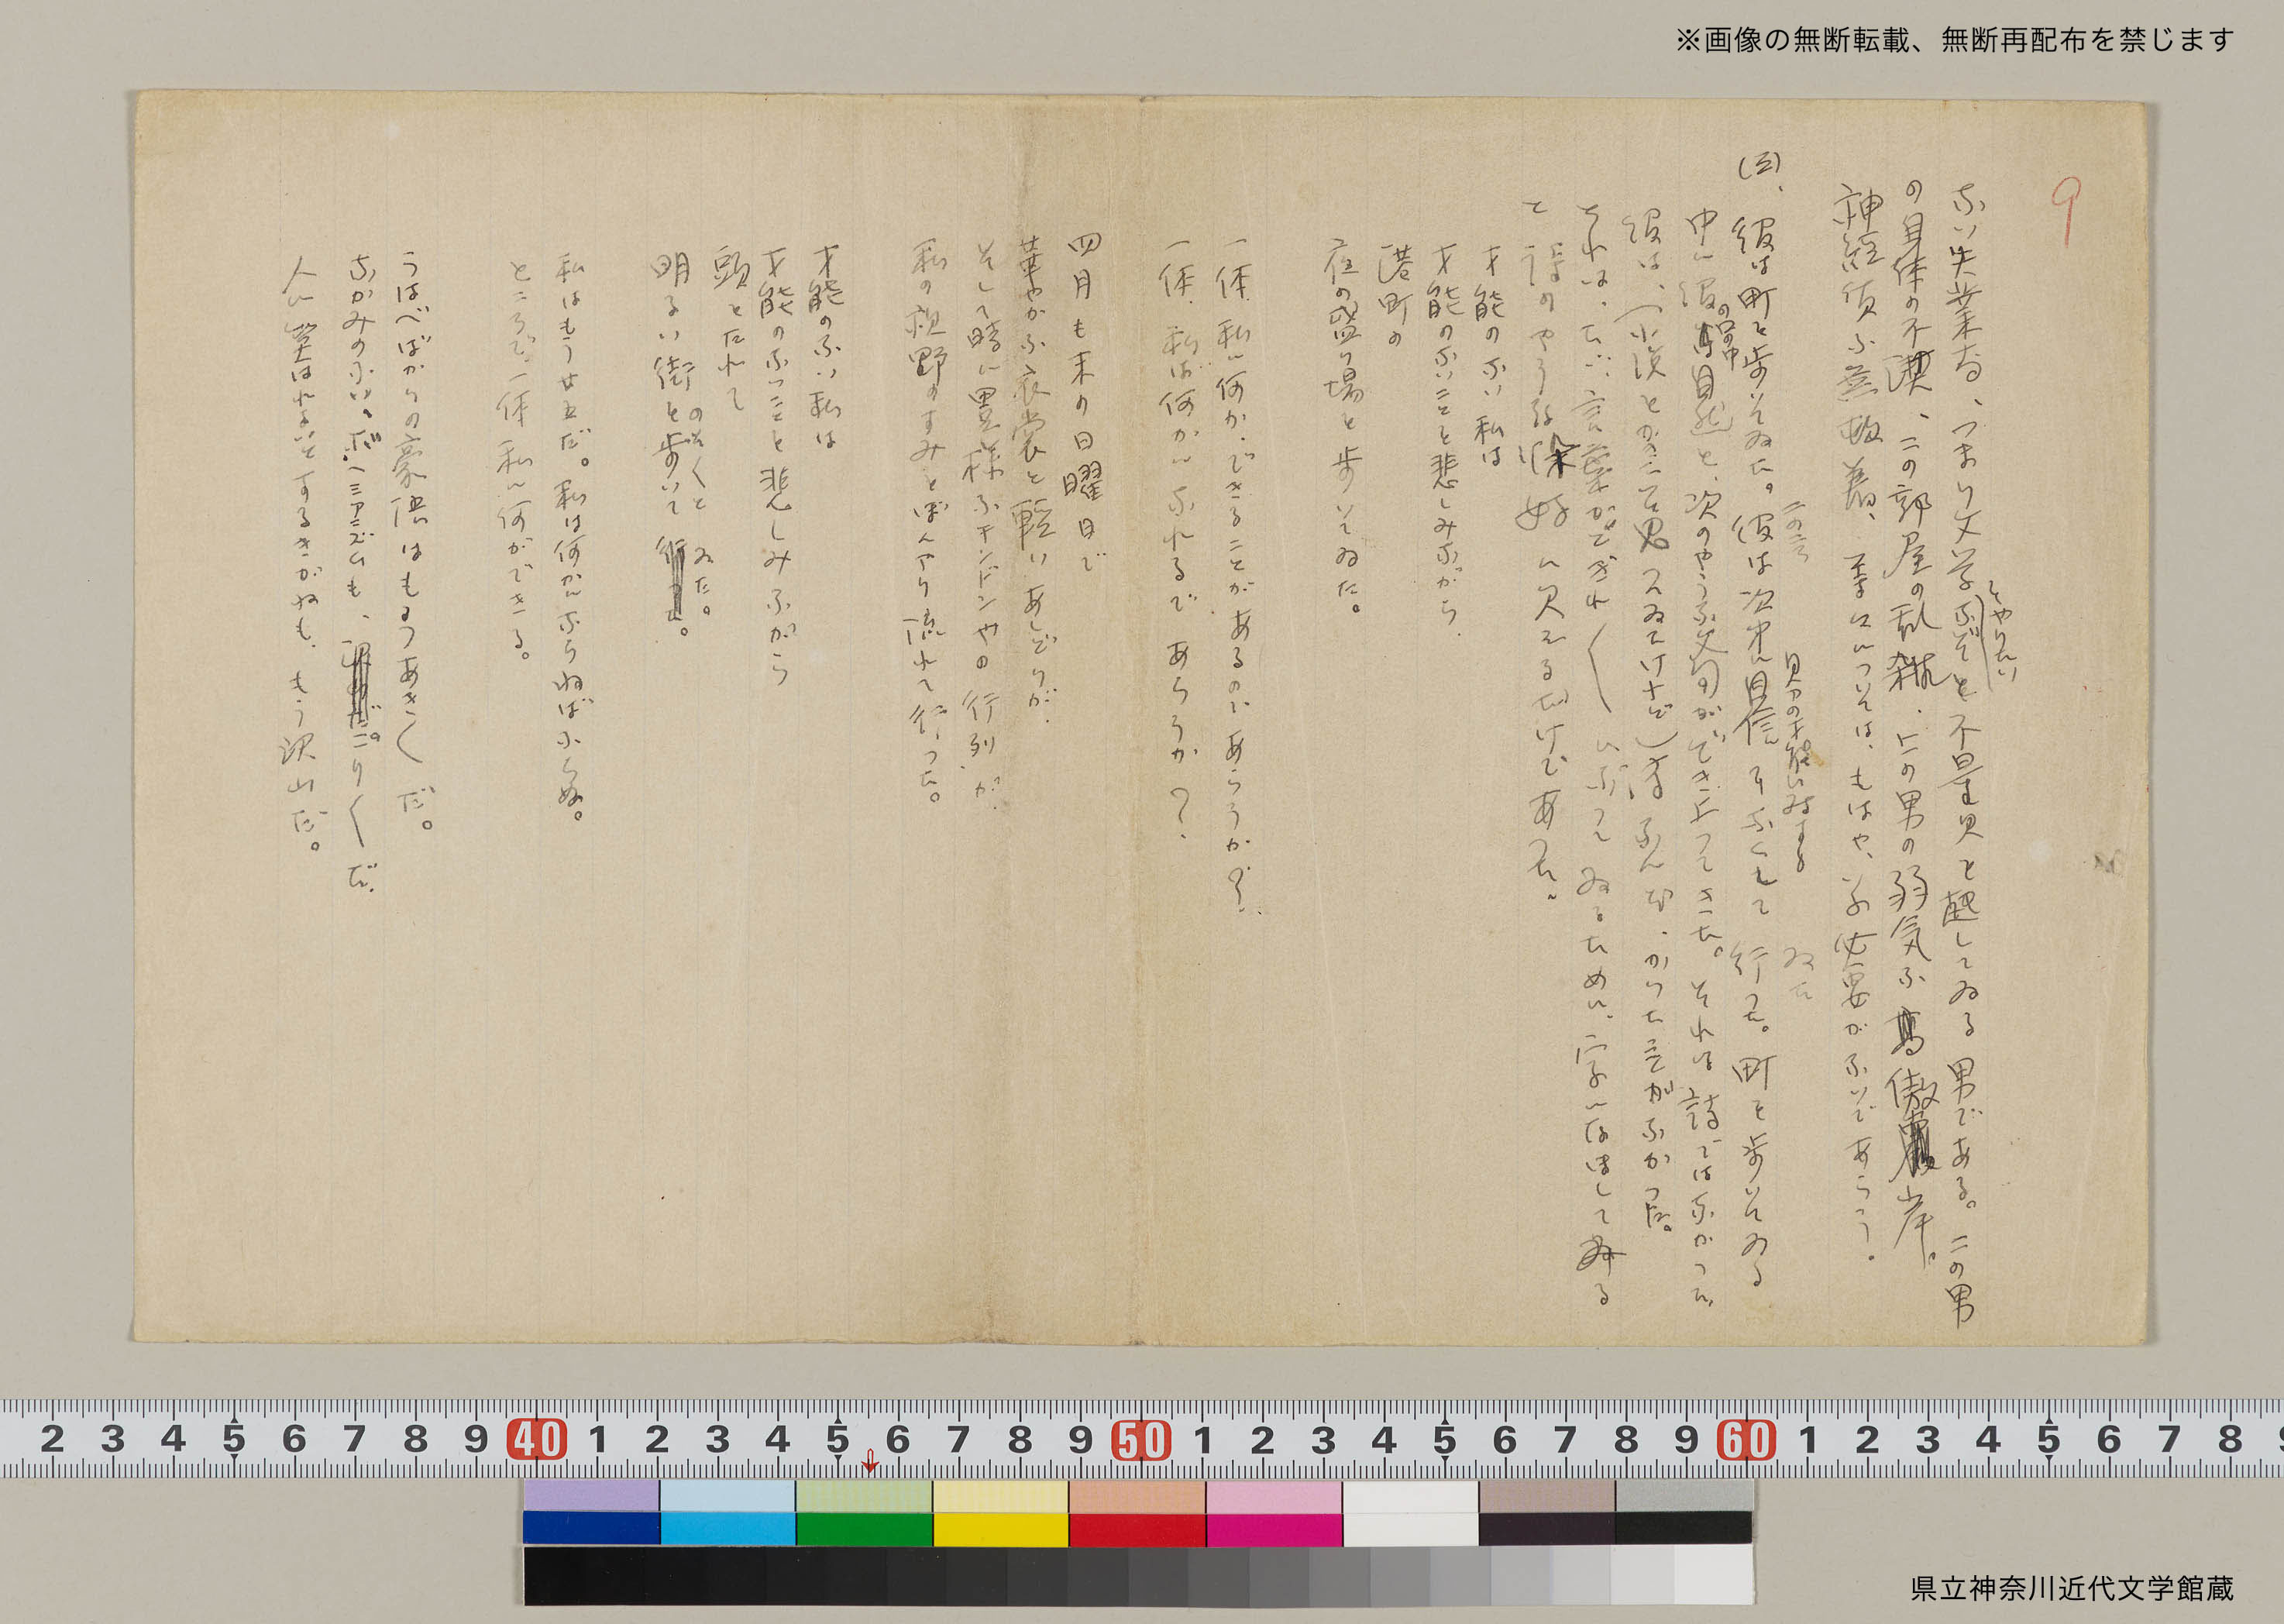 ※画像の無断転載、無断再配布を禁じます
9
ない失業者、つまり文学などと不量見を起してゐる男である。この男
をやりたい
の身体の不潔、この部屋の乱雑、この男の弱気な傲岸。
神経質な無頓着、等々については、もはや、いふ必要がないであらう。
(三)、彼は町を歩いてゐた。彼は次第に自信をなくして行つた。町を歩いてゐる
このごろ
自分の才能に対する
ゐた
中に彼の頭の中自然と、次のやうな文句ができ上つてきた。それは詩ではなかつた。
彼は、
それは、たゞ、言葉がとぎれ〳〵になつてゐるために、字にはしてみる
と詩のやうな
に見えるだけであつた。
才能のない私は
才能のないことを悲しみながら
港町の
夜の盛り場を歩いてゐた。
一体、私に何かできることがあるのであらうか?
一体、私は何かになれるであらうか?
四月も末の日曜日で
華やかな衣裳と軽いあしどりが、
そして時に異様なチンドンやの行列が、
私の視野のすみをぼんやり流れて行つた。
才能のない私は
才能のないことを悲しみながら
頭をたれて
のそくと
明るい街を歩いて
ゐた。
私はもう廿五だ。私は何かにならねばならぬ。
ところで、一体私に何ができる。
うはべばかりの豪傲はもうあき〳〵だ。
なかみのない。ボヘミアニズムも、こり〳〵だ。
人に笑はれまいとするきがねも、もう沢山だ。
2 3 4 5 6 7 8 9 40 1 2 3 4 5 6 7 8 9 50 1 2 3 4 5 6 7 8 9 60 1 2 3 4 5 6 7 8
県立神奈川近代文学館蔵